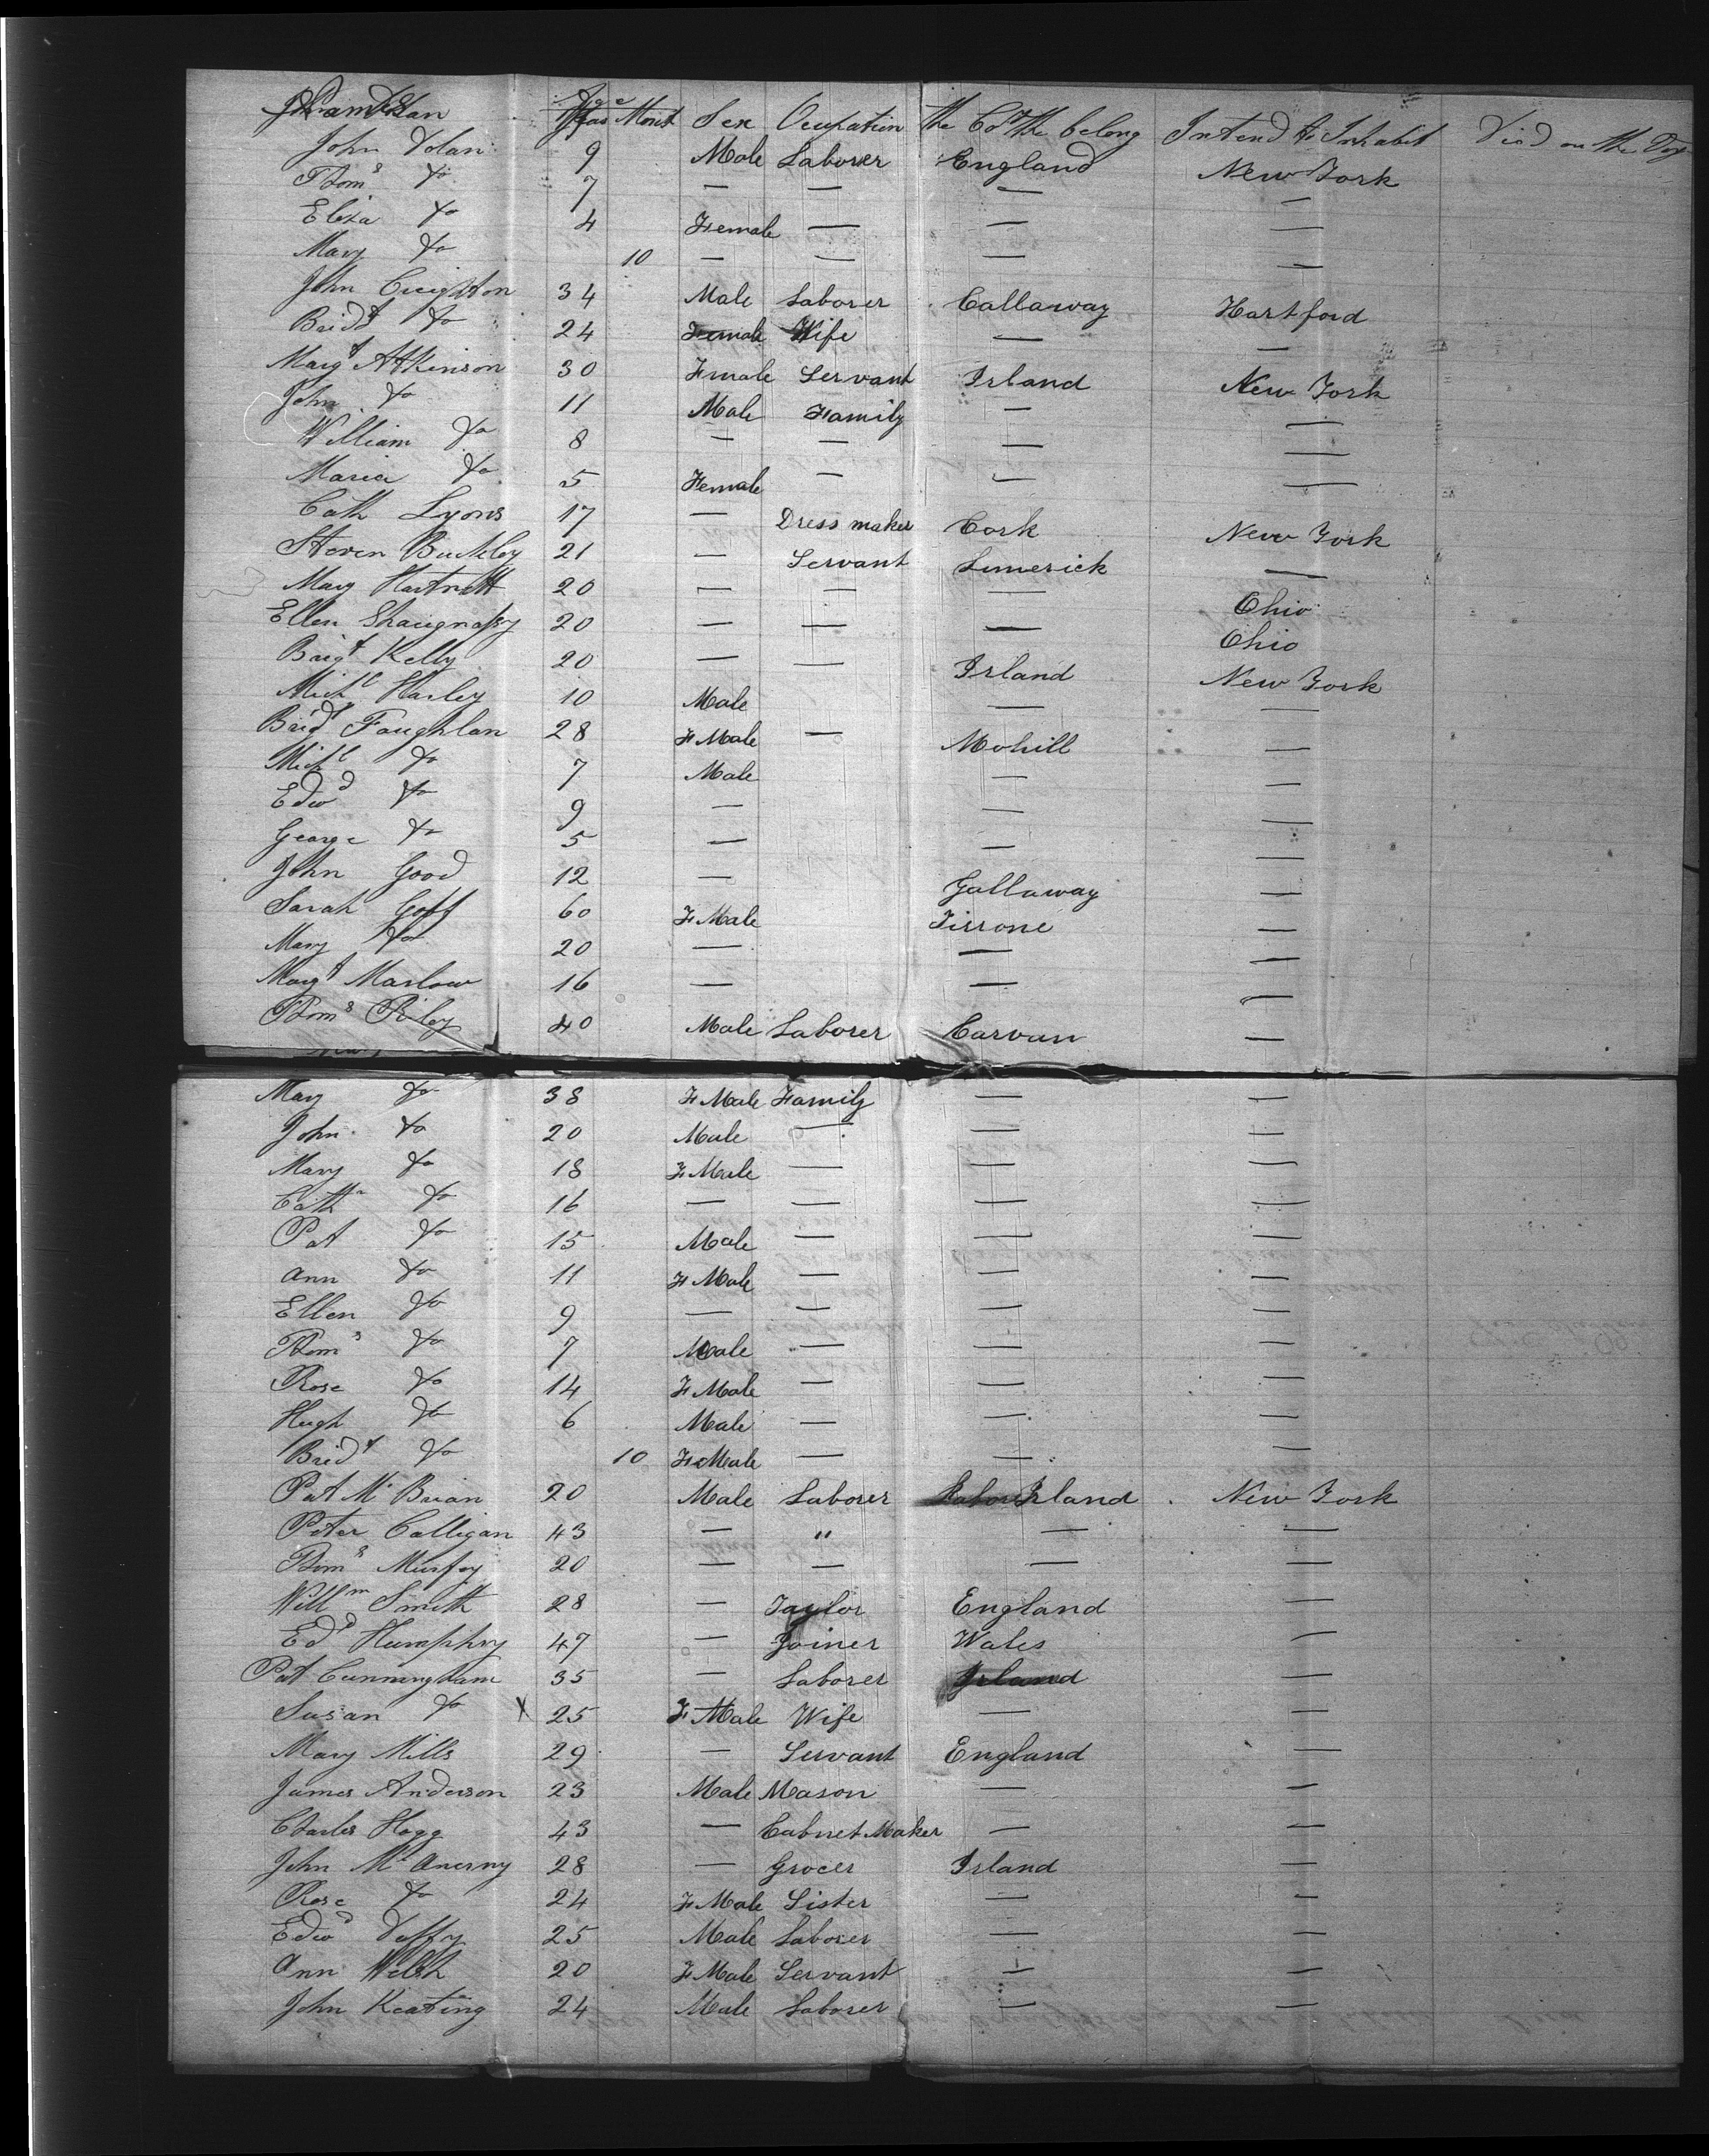 Age
Years Mont Sex Ocupation the Co^t the belong Intend to Inhabit Died on the
John Dolan 9 Male Laborer England New York
Thom^s Do 7 — — — —
Eliza Do 4 Female — — —
Mary Do 10 — — — —
John Creighton 34 Male Laborer Callaway Hartford
Brid^t Do 24 Female Wife — —
Marg^t Atkinson 30 Fmale Servant Irland New York
John Do 11 Male Family — —
William Do 8 — — — —
Maria Do 5 Female — — —
Cath Lyons 17 — Dress maker Cork New York
Steven Buckley 21 — Servant Limerick —
Mary Hartnett 20 — — — Ohio
Ellen Shaugnassy 20 — — — Ohio
Brig^t Kelly 20 — — Irland New York
Mich^l Harley 10 Male — —
Brid^t Faughlan 28 FMale — Mohill —
Mich^l Do 7 Male — —
Edw^d Do 9 — — —
George Do 5 — — —
John Good 12 — Gallaway —
Sarah Goff 60 FMale Tirrone —
Mary Do 20 — — —
Marg^t Marlow 16 — — —
Thom^s Riley 40 Male Laborer Carvan —
Mary Do 38 FMale Family — —
John Do 20 Male — — —
Mary Do 18 FMale — — —
Cath^n Do 16 — — — —
Pat Do 15 Male — — —
Ann Do 11 FMale — — —
Ellen Do 9 — — — —
Thom^s Do 7 Male — — —
Rose Do 14 FMale — — —
Hugh Do 6 Male — — —
Brid^t Do 10 FMale — — —
Pat Mc Brian 20 Male Laborer Irland New York
Peter Calligan 43 — " — —
Thom^s Murfey 20 — — — —
Will^m Smith 28 — Taylor England —
Ed^d Humphry 47 — Joiner Wales —
Pat Cunningham 35 — Laborer Irland —
Susan Do X 25 FMale Wife — —
Mary Mills 29 — Servant England —
James Anderson 23 Male Mason — —
Charles Hogg 43 — Cabnet Maker — —
John Mc Anerny 28 — Grocer Irland —
Rose Do 24 FMale Sister — —
Edw^d Duffy 25 Male Laborer — —
Ann Welsh 20 FMale Servant — —
John Keating 24 Male Laborer — —